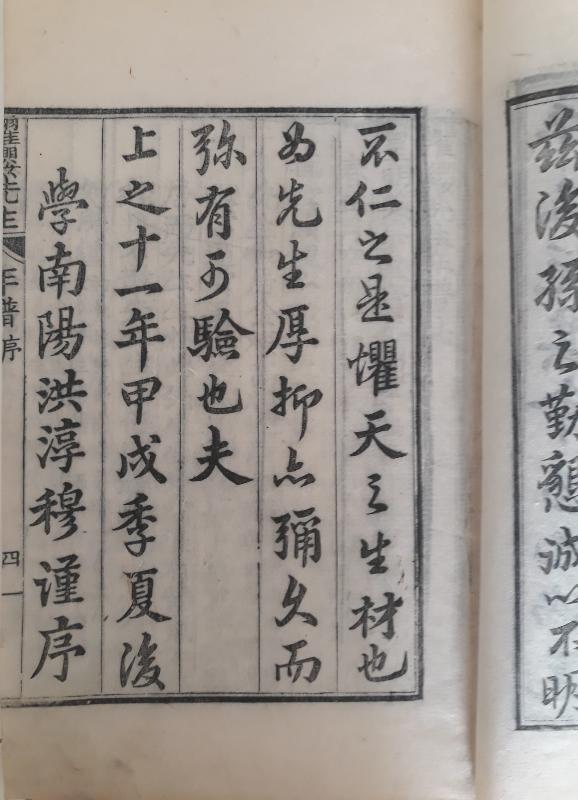 茲後孫之勤懇誠以不明
不仁之是懼天之生材也
為先生厚抑亦彌久而
弥有可驗也夫
上之十一年甲戌季夏後
學南陽洪淳穆謹序
先生
年譜序
四